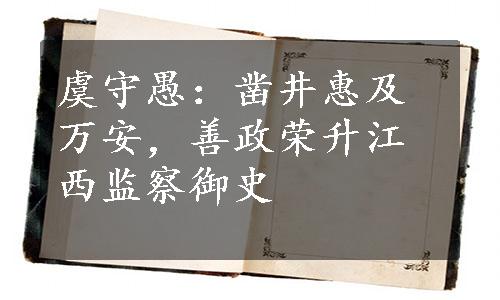 虞守愚：凿井惠及
万安，善政荣升江
西监察御史